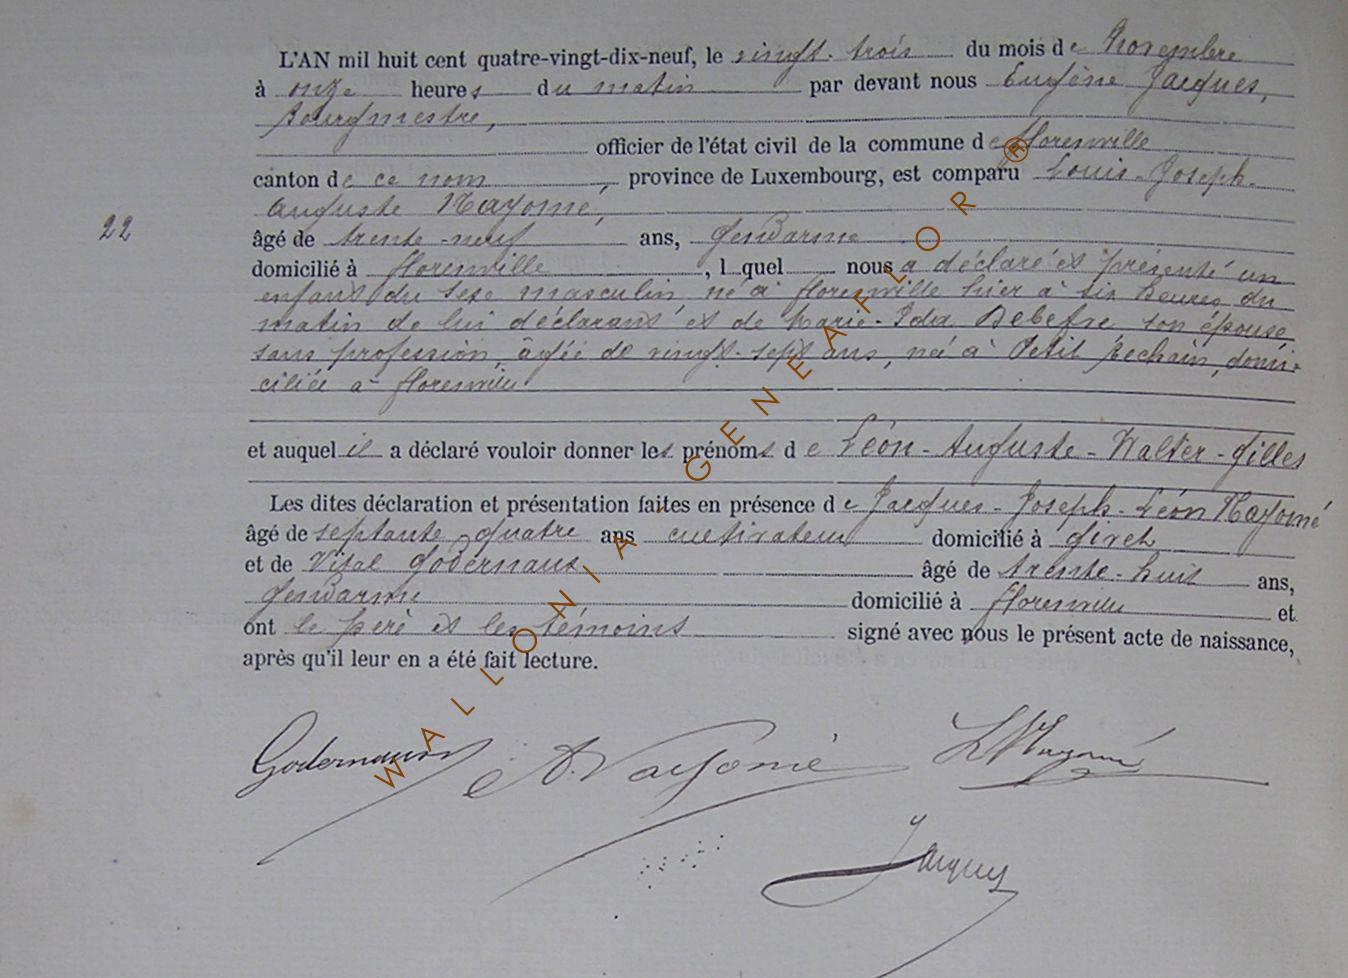 L'AN mil huit cent quatre-vingt-dix-neuf, le vingt-trois du mois de Novembre
à onze heures du matin par devant nous Eugène Jacques,
Bourgmestre,
officier de l'état civil de la commune de Florenville
canton de ce nom, province de Luxembourg, est comparu Louis-Joseph-
Auguste Nayomé,
22
âgé de trente-neuf ans, gendarme
domicilié à Florenville, lquel nous a déclaré et présenté un
enfant du sexe masculin, né à Florenville hier à six heures du
matin de lui déclarant et de Marie-Ida Debefve son épouse
sans profession, âgée de vingt-sept ans, née à Petit Rechain, domi-
ciliée à Florenville
et auquel il a déclaré vouloir donner les prénoms de Léon-Auguste-Walter-Gilles
Les dites déclaration et présentation faites en présence de Jacques-Joseph-Léon Nayomé
âgé de septante quatre ans cultivateur domicilié à Givet
et de Vital Godernaux âgé de trente-huit ans,
gendarme domicilié à Florenville et
ont le père et les témoins signé avec nous le présent acte de naissance,
après qu'il leur en a été fait lecture.
Godernaux A. Nayomé L Nayomé
Jacques
WALLONIA - GENEAFLOR ®